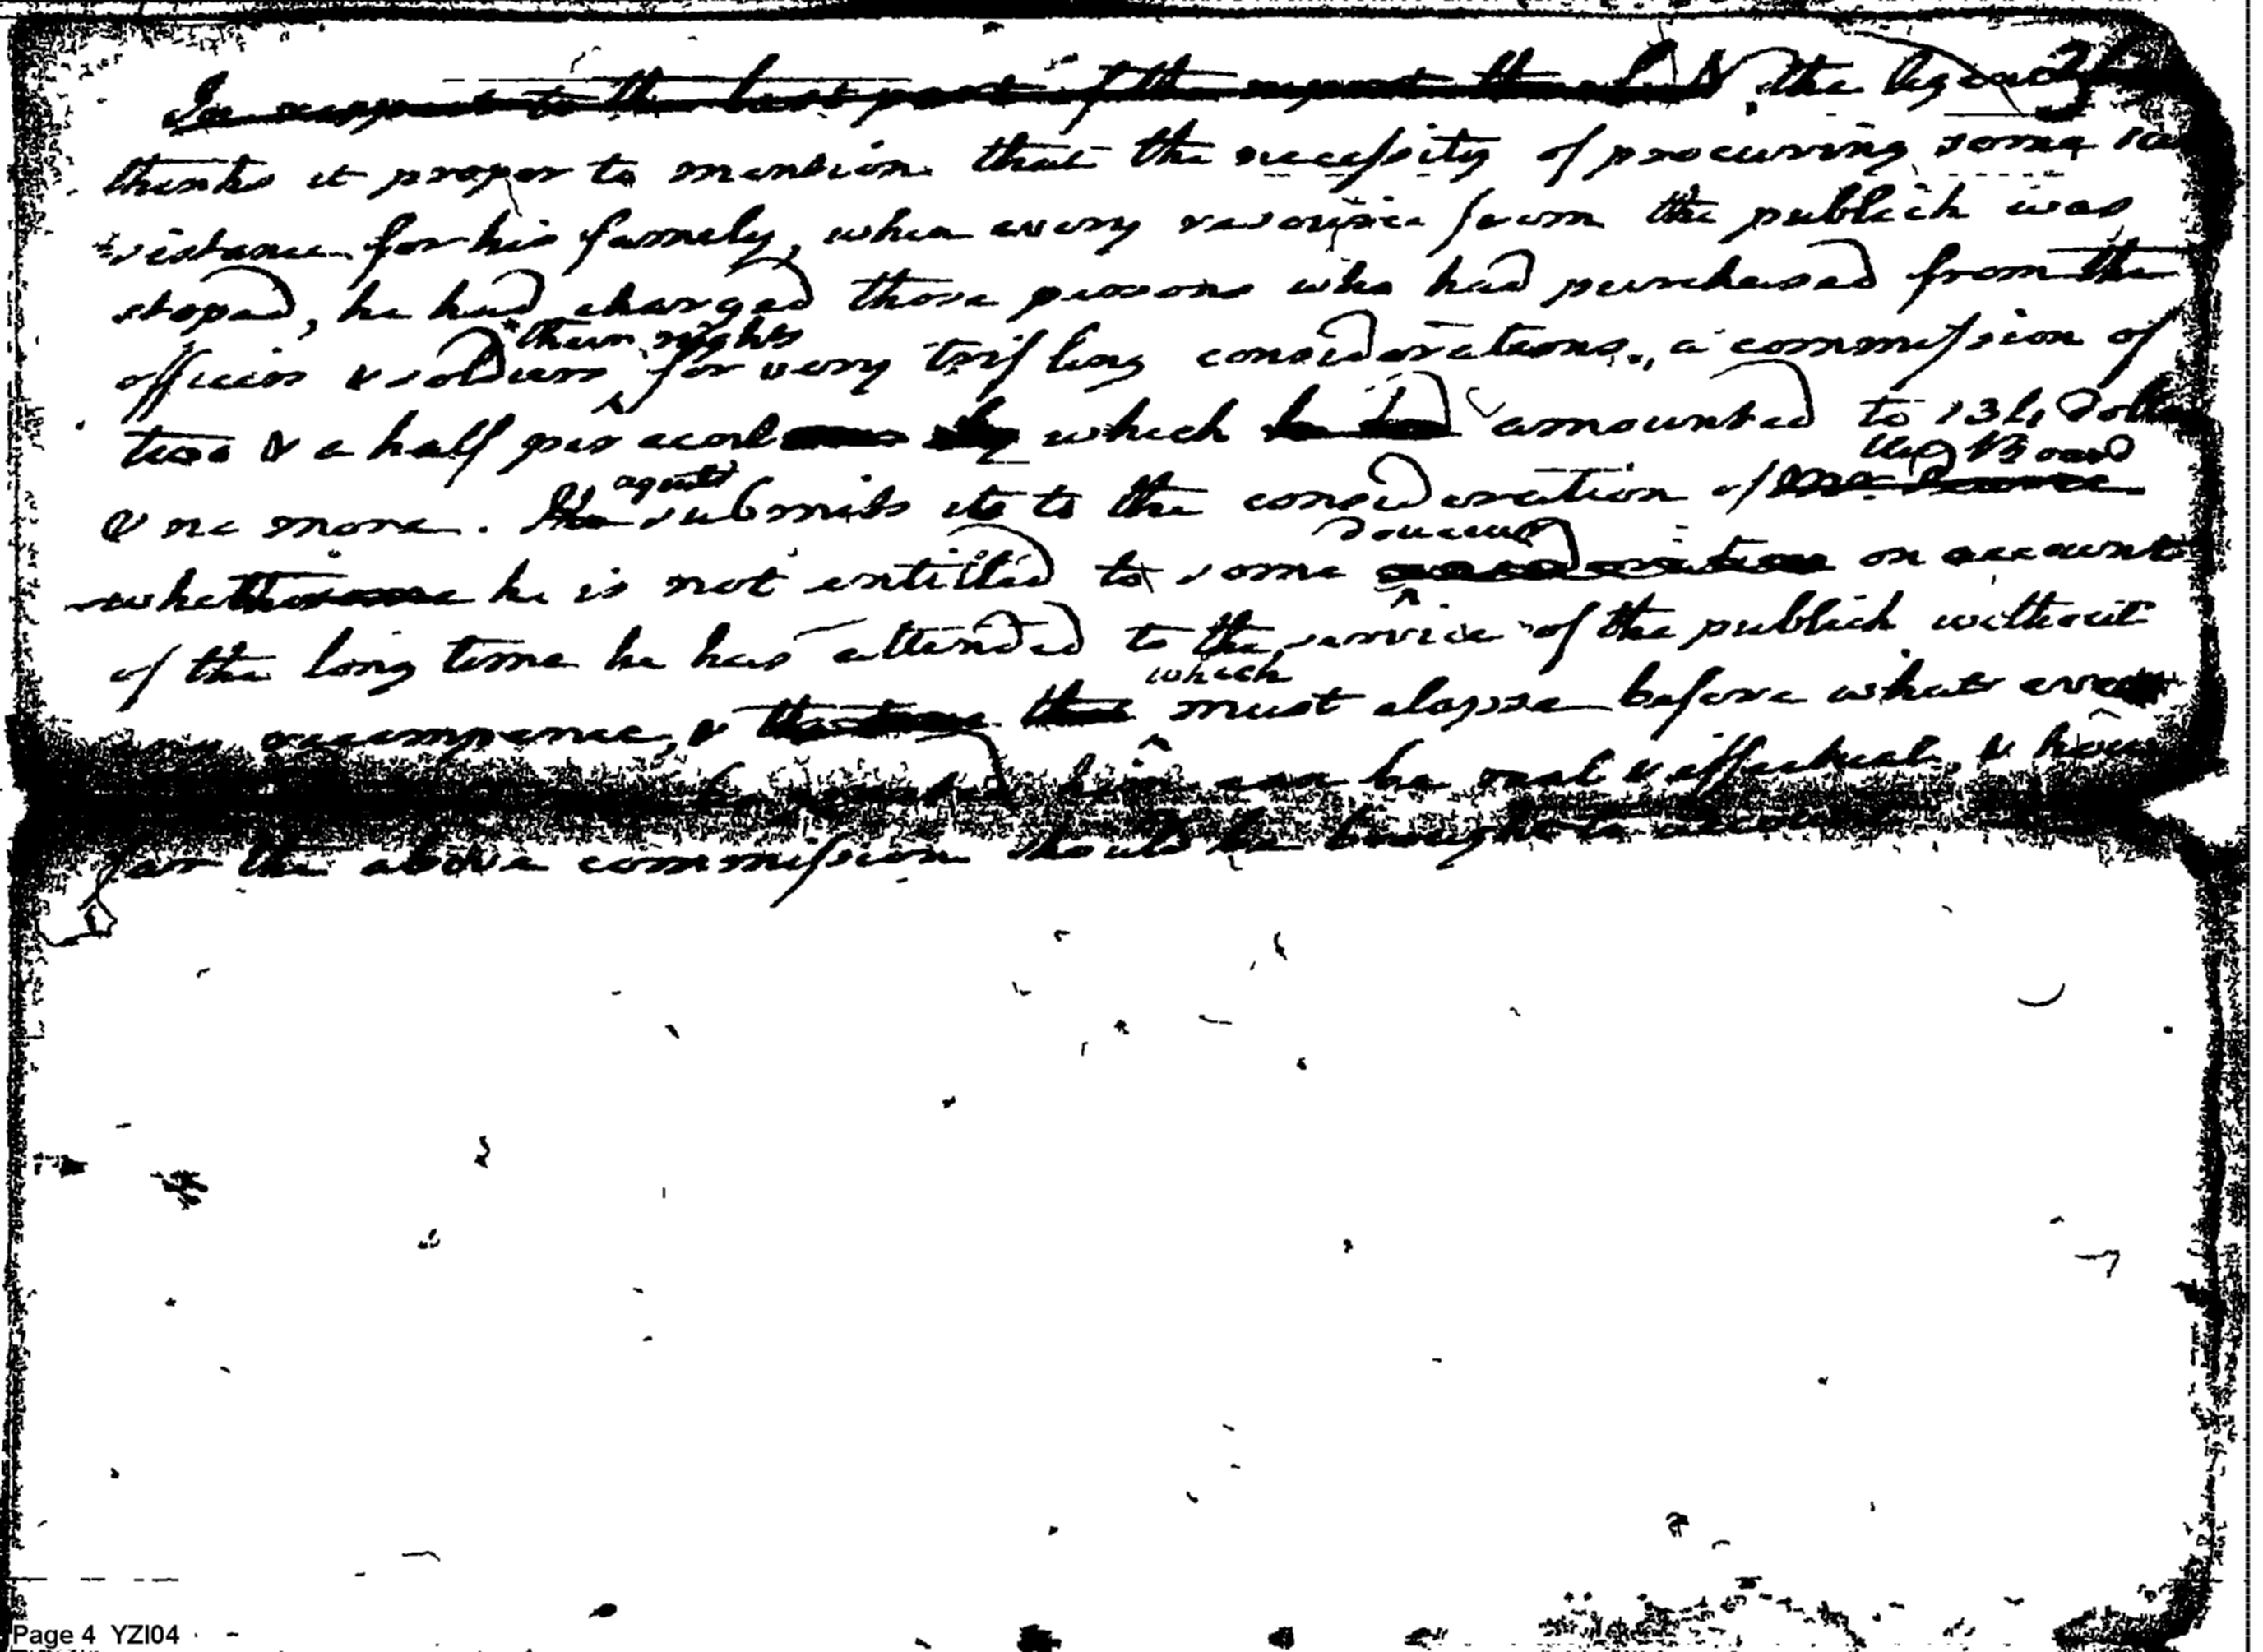 In respect to the last part of the report the N. the Agent
thinks it proper to mention that the necessity of procuring some
sistance for his famely, when every resource from the publick was
stoped, he had charged those persons who had purchased from the
their rights
officers & soldiers for very trifling considerations, a commission of
two & a half per cent which he had amounted to 134 Dollars
the Board
& no more. He agent submits it to the consideration of
douceur
whether he is not entitled to some consideration on account
of the long time he has attended to the service of the publick without
which
any recompence, & the time that must elapse before what ever
him can be real & effectual, & how
far the above commission should be brought to account
Page 4 YZI04